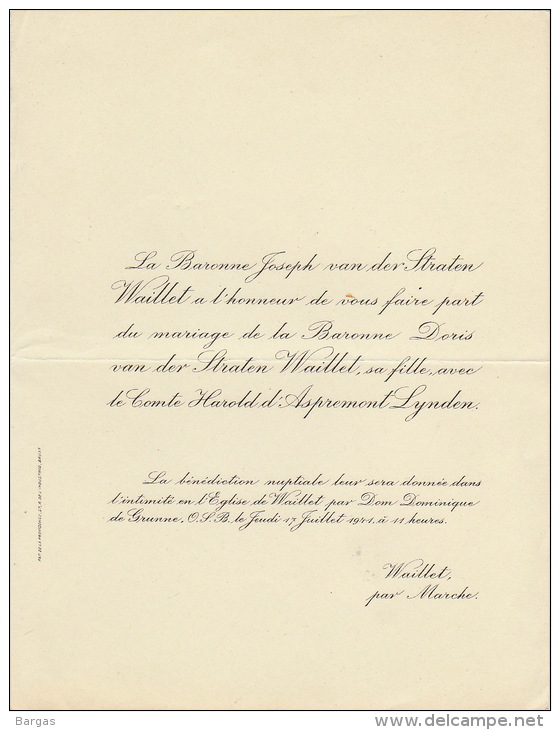 La Baronne Joseph van der Straten
Waillet a l'honneur de vous faire part
du mariage de la Baronne Doris
van der Straten Waillet, sa fille, avec
le Comte Harold d'Aspremont Lynden.
La bénédiction nuptiale leur sera donnée dans
l'intimité en l'Eglise de Waillet par Dom Dominique
de Grunne, O.S.B. le Jeudi 17 Juillet 1941, à 11 heures.
Waillet,
par Marche.
Bargas
delcampe.net